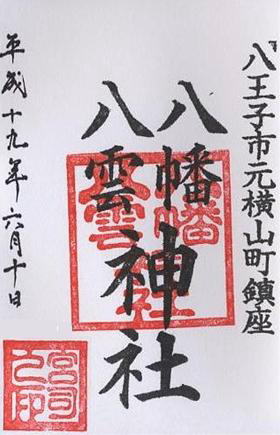 八王子市元横山町鎮座
八幡
八雲
神社
平成十九年六月十日
宮司之印